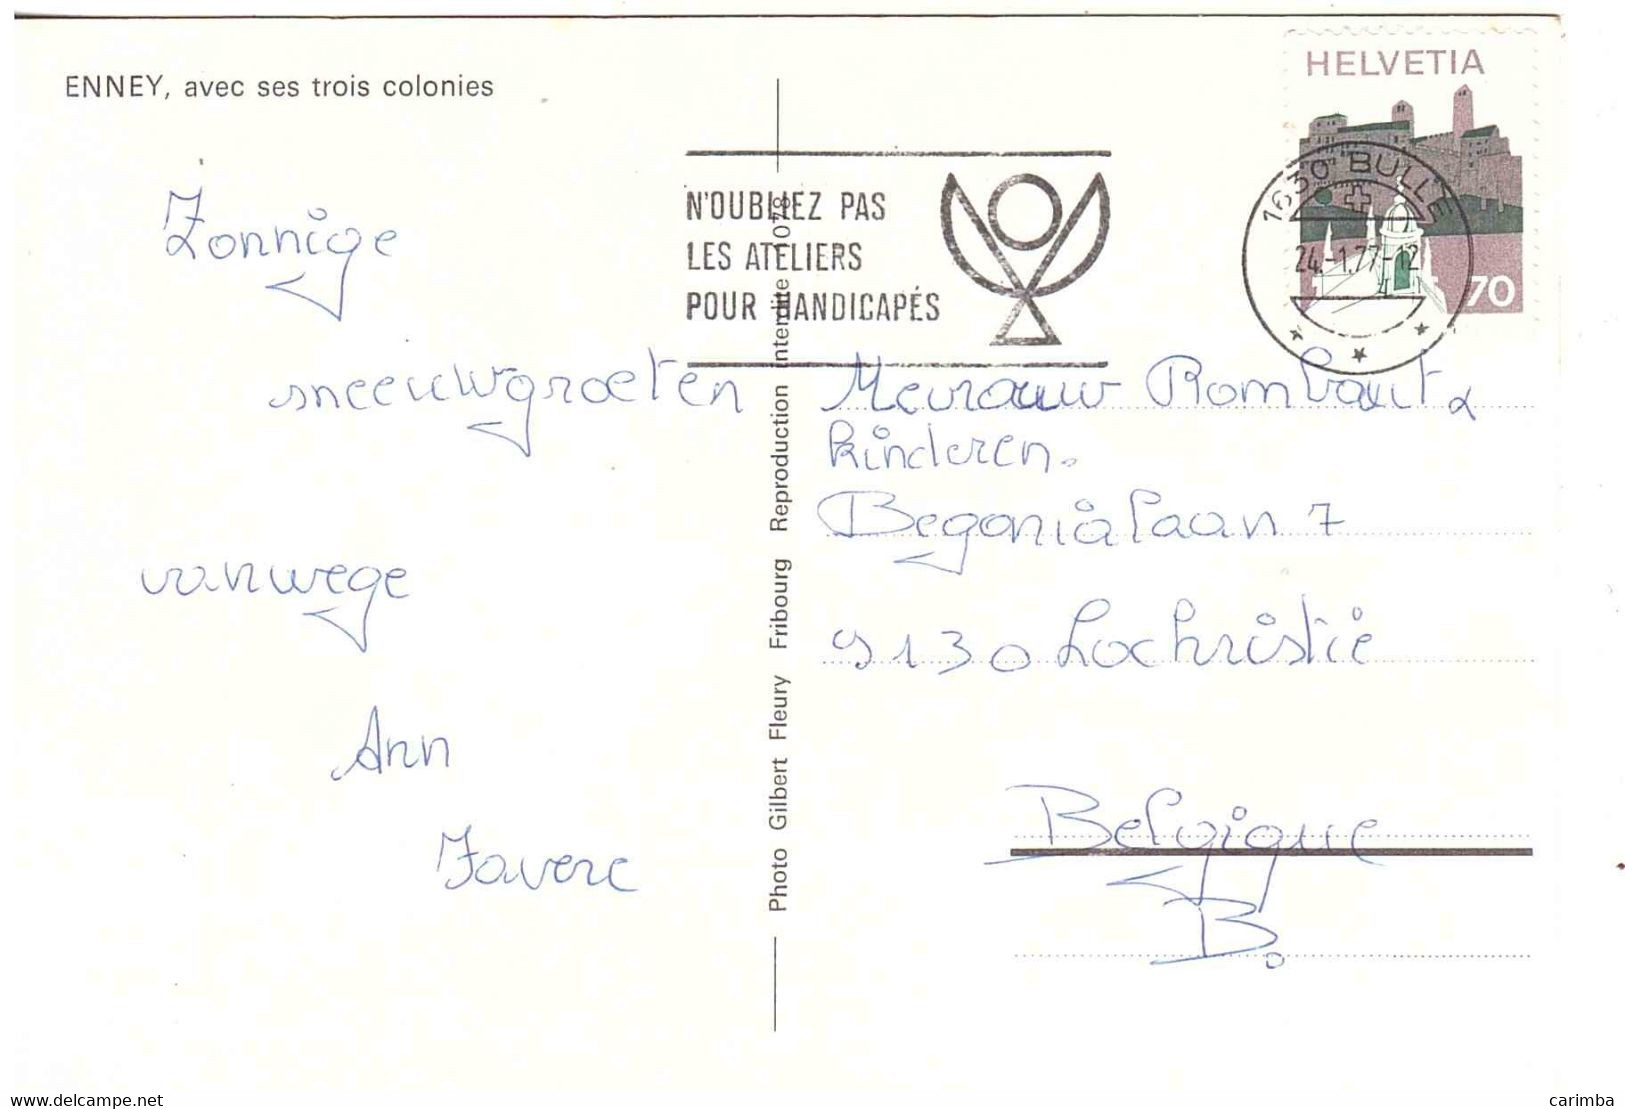 ENNEY, avec ses trois colonies
HELVETIA
70
1630 BULLE
24.-1.77-12
N'OUBLIEZ PAS
LES ATELIERS
POUR HANDICAPÉS
Zonnige
sneeuwgroeten
vanwege
Ann
Photo Gilbert Fleury Fribourg Reproduction interdite 1078
Mevrouw Rombaut &
kinderen.
Begonialaan 7
9130 Lochristie
Belgique
B.
delcampe.net
carimba